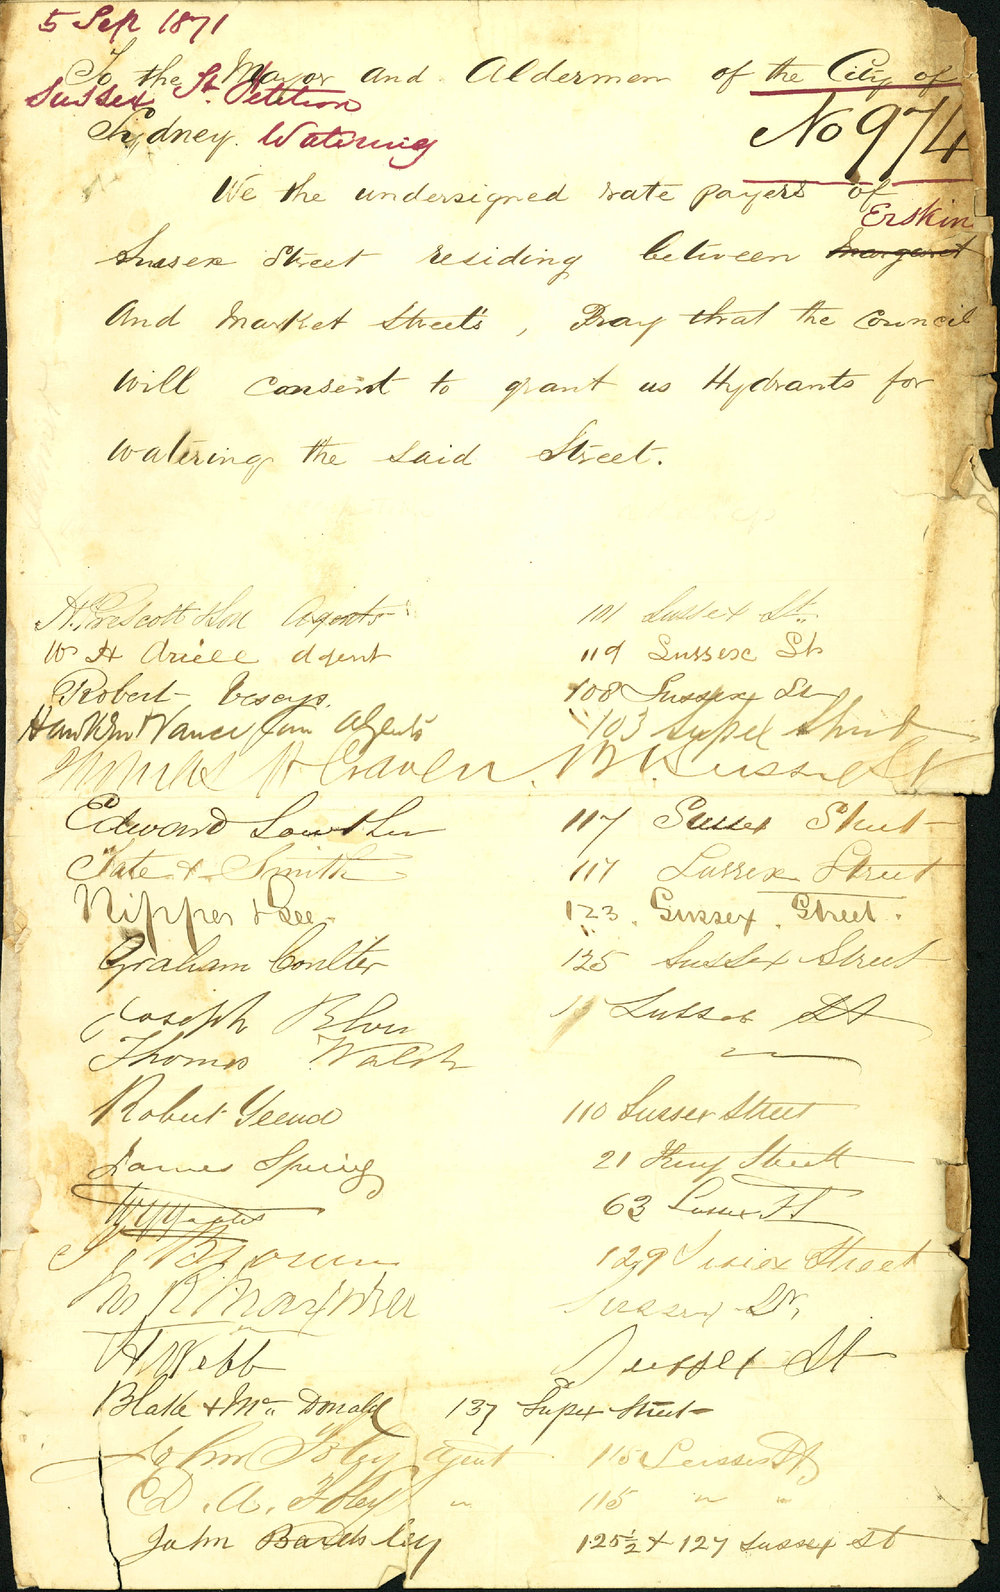 5 Sep 1871
To the Mayor and Aldermen of the City of
Sussex St. Petition
Sydney. Watering
No 974
We the undersigned rate payers of
Erskin
Sussex Street residing between Margaret
And Market Streets, Pray that the Council
will consent to grant us Hydrants for
watering the said Street.
H. Prescott & Son Agents 101 Sussex St.
W H Ariell Agent 119 Sussex St
Robert Vesey 108 Sussex St
Agents 103 Sussex Street
Thomas H Craven. Sussex St
Edward Lowther 117 Sussex Street
Tate & Smith 117 Sussex Street
Nipper & See 123. Sussex. Street.
Graham Coulter 125 Sussex Street
Joseph Sussex St
Thomas Walsh
Robert Geend 110 Sussex Street
James Spring 21 King Street
63 Sussex St
Brown 129 Sussex Street
Sussex St,
H Webb Sussex St
Blake & Mc Donald 137 Sussex Street
John Foley Agent 115 Sussex St
D. A. Foley " 115 " "
John Bardsley 125½ & 127 Sussex St